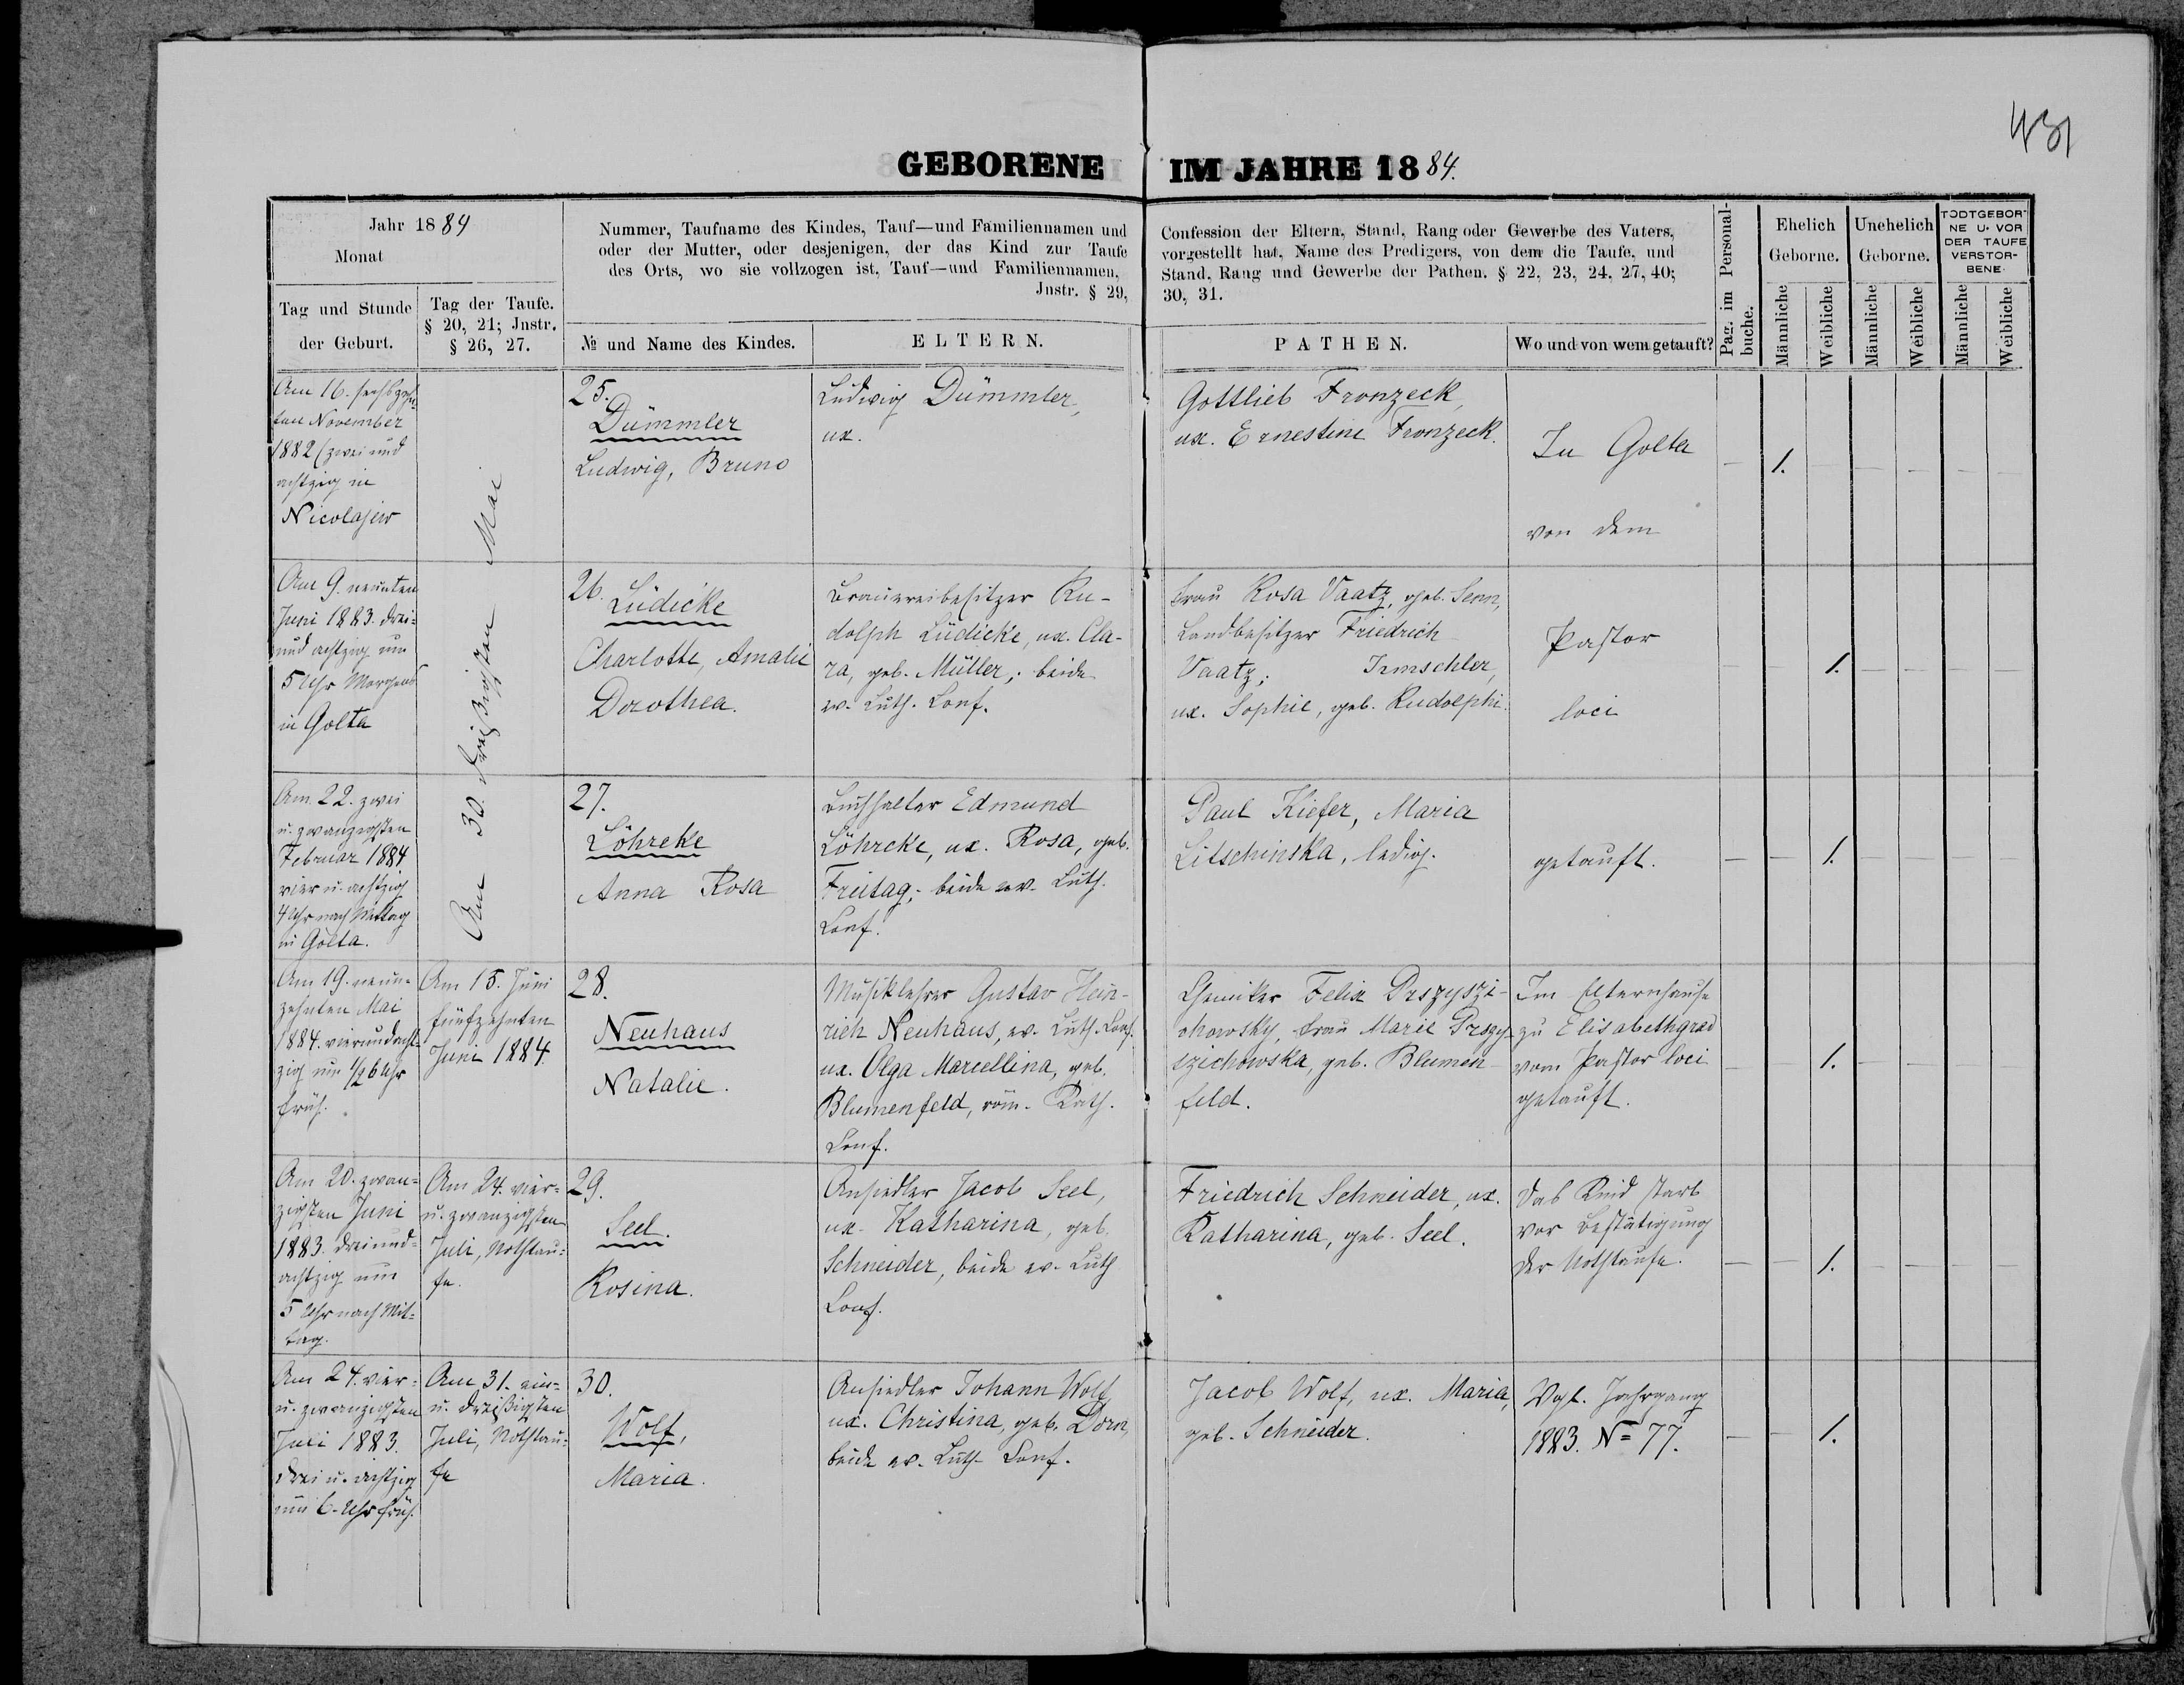 431
GEBORENE IM JAHRE 1884.
Jahr 1884
Monat
Tag und Stunde
der Geburt.
Tag der Taufe.
§ 20, 21; Jnstr.
§ 26, 27.
Nummer, Taufname des Kindes, Tauf—und Familiennamen und
oder der Mutter, oder desjenigen, der das Kind zur Taufe
des Orts, wo sie vollzogen ist, Tauf—und Familiennamen,
Jnstr. § 29,
№ und Name des Kindes.
ELTERN.
Confession der Eltern, Stand, Rang oder Gewerbe des Vaters,
vorgestellt hat, Name des Predigers, von dem die Taufe, und
Stand, Rang und Gewerbe der Pathen. § 22, 23, 24, 27, 40;
30, 31.
PATHEN.
Wo und von wem getauft?
Pag. im Personal-
buche.
Ehelich
Geborne.
Unehelich
Geborne.
TODTGEBOR-
NE U. VOR
DER TAUFE
VERSTOR-
BENE.
Männliche
Weibliche
Männliche
Weibliche
Männliche
Weibliche
Am 16. sechszehn-
ten November
1882 (zwei und
achtzig in
Nicolajew
Am 30. dreißigsten Mai
25.
Dümmler
Ludwig, Bruno
Ludwig Dümmler,
ux.
Gottlieb Fronzeck,
ux. Ernestine Fronzeck.
In Golta
von dem
1.
Am 9. neunten
Juni 1883. drei-
und achtzig um
5 Uhr Morgens
in Golta
26.
Lüdicke
Charlotte, Amalie
Dorothea.
Brauereibesitzer Ru-
dolph Lüdicke, ux. Cla-
ra, geb. Müller; beide
ev. Luth. Conf.
Frau Rosa Vaatz, geb. Senn,
Landbesitzer Friedrich
Vaatz; Irmschler,
ux. Sophie, geb. Rudolphi.
Pastor
loci
1.
Am 22. zwei
u. zwanzigsten
Februar 1884
vier u. achtzig
4 Uhr nach Mittag
in Golta.
27.
Löhrcke
Anna Rosa
Buchhalter Edmund
Löhrcke, ux. Rosa, geb.
Freitag; beide ev. Luth.
Conf.
Paul Kiefer, Maria
Litschinska, ledig.
getauft.
1.
Am 19. neun-
zehnten Mai
1884. vierundacht-
zig um 1/2 6 Uhr
früh.
Am 15. Juni
fünfzehnten
Juni 1884
28.
Neuhaus
Natalie.
Musiklehrer Gustav Hein-
rich Neuhaus, ev. Luth. Conf.
ux. Olga Marcellina, geb.
Blumenfeld, röm. Kath.
Conf.
Chemiker Felix Przyszi-
chowsky, Frau Marie Przy-
szichowska, geb. Blumen-
feld.
Im Elternhause
zu Elisabethgrad
vom Pastor loci
getauft.
1.
Am 20. zwan-
zigsten Juni
1883. dreiund-
achtzig um
5 Uhr nach Mit-
tag.
Am 24. vier-
u. zwanzigsten
Juli, Nothtau-
fe.
29.
Seel.
Rosina.
Ansiedler Jacob Seel,
ux. Katharina, geb.
Schneider, beide ev. Luth
Conf.
Friedrich Schneider, ux.
Katharina, geb. Seel.
Das Kind starb
vor Bestätigung
der Nothtaufe.
1.
Am 24. vier-
u. zwanzigsten
Juli 1883.
drei u. achtzig
um 6 Uhr früh.
Am 31. ein-
u. dreißigsten
Juli, Nothtau-
fe
30.
Wolf,
Maria.
Ansiedler Johann Wolf,
ux. Christina, geb. Dorn,
beide ev. Luth. Conf.
Jacob Wolf, ux. Maria,
geb. Schneider.
Vgl. Jahrgang
1883. N= 77.
1.